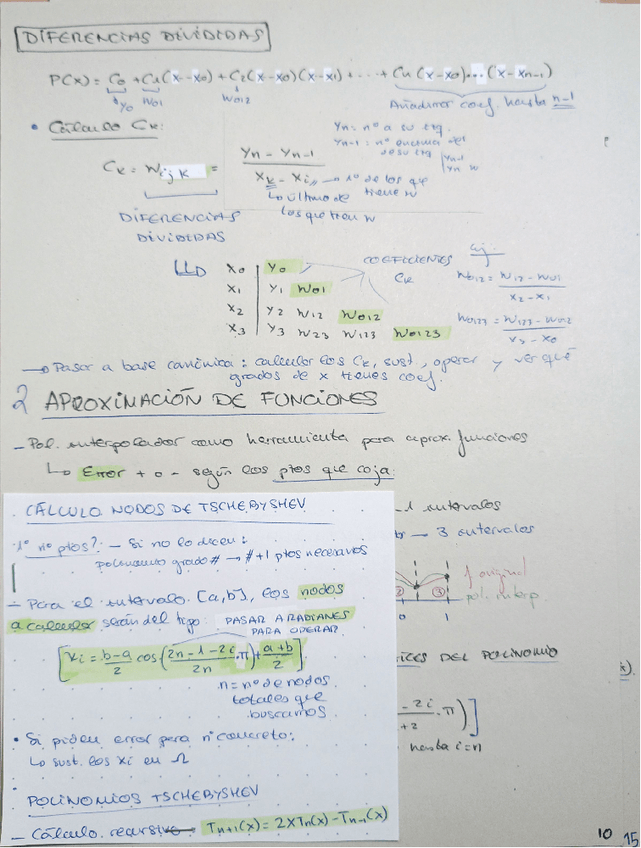 DIFERENCIAS DIVIDIDAS
P(x) = C0 + C1(x-x0) + C2(x-x0)(x-x1) + ... + Cn(x-x0)...(x-xn-1)
y0 W01 W012 Añadimos coef. hasta n-1
• Cálculo Ck:
yn = nº a su izq.
yn-1 = nº encima del de su izq
yn-1
yn w
Ck = Wijk = yn - yn-1 / xk - xi → 1º de los que tiene w
Lo último de los que tien w
DIFERENCIAS DIVIDIDAS
x0 y0 COEFICIENTES Ck
x1 y1 W01
x2 y2 W12 W012
x3 y3 W23 W123 W0123
Ej.
W012 = W12 - W01 / x2 - x1
W0123 = W123 - W012 / x3 - x0
→ Pasar a base canónica: calcular los Ck, sust., operar y ver qué
grados de x tienes coef.
2 APROXIMACIÓN DE FUNCIONES
- Pol. interpolador como herramienta para aprox. funciones
↳ Error + o - según los ptos que coja:
CÁLCULO NODOS DE TSCHEBYSHEV
1º nº ptos? - Si no lo dicen:
polinomio grado # → #+1 ptos necesarios
- Para el intervalo [a,b], los nodos
a calcular serán del tipo: PASAR A RADIANES
PARA OPERAR
xi = b-a/2 cos(2n-1-2i/2n · π) + a+b/2
n = nº de nodos
totales que
buscamos
• Si piden error para nº concreto:
Lo sust. los xi en Ω
POLINOMIOS TSCHEBYSHEV
- Cálculo recursivo Tn+1(x) = 2xTn(x) - Tn-1(x)
1 intervalos
→ 3 intervalos
f original
pol. interp.
② ③
0 1
DEL POLINOMIO
- 2i/+2 · π)]
hasta i=n
10
15